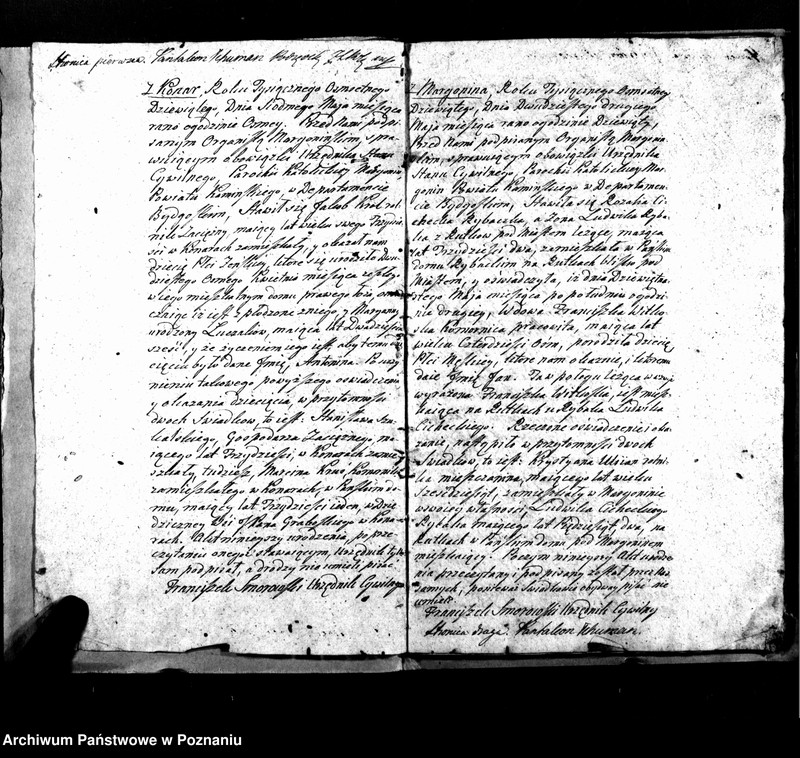 Stronica pierwsza. Pantaleon Schuman
Z Konar, Roku Tysiącznego Osmsetnego
Dziewiątego, Dnia Siodmego Maja miesiąca
rano ogodzinie Osmey, Przed Nami podpi-
sanym Organistą Margoninskim, spra-
wuiącym obowiązki Urzędnika Stanu
Cywilnego, Parochii Katolickiey Margonin
Powiatu Kaminskiego, w Departamencie
Bydgoskim, Stawił się Jakub Krol rol-
nik Zacięzny, maiący lat wieku swego Trzydzie-
sci w Konarach zamieszkały, y okazał nam
dziecię Płci Zenskiey, ktore się urodziło Dwu-
dziestego Osmego Kwietnia miesiąca
w iego mieszkalnym domu
iż iest spłodzone z niego, y Maryanny
urodzoney maiąca lat Dwadziescia
szesc, y że życzeniem iego iest, aby temu dzie-
cięciu było dane Jmię, Antonina. Po uczy-
nieniu takowego powyższego oswiadczenia
y okazania dziecięcia, w przytomnosci
dwoch Swiadkow, to iest: Stanisława
Gospodarza Zacięznego, ma-
iącego lat Trzydziesci, w Konarach zamie-
szkały, tudziesz, Marcina Komornika
zamieszkałego w Konarach, w Panskim do-
mu, maiący lat Trzydziesci ieden,
Grabowskiego w Kona-
rach. Akt ninieyszy urodzenia, po prze-
czytaniu onegoż stawaiącym, Urzędnik tylko
Sam podpisał, a drudzy nie umieli pisać
Franciszek Smorowski Urzędnik Cywilny
Z Margonina, Roku Tysiącznego Osmsetnego
Dziewiątego, Dnia Dwudziestego drugiego
Maja miesiąca rano ogodzinie Dziewiąty,
Przed Nami podpisanym Organistą Margonin-
skim, sprawuiącym obowiązki Urzędnika
Stanu Cywilnego, Parochii Katolickiey Mar-
gonin Powiatu Kaminskiego w Departamen-
cie Bydgoskim, Stawiła się Rozalia Ci-
checka Rybaczka, a żona Ludwika Ryba-
ka z Rutkow pod Miastem leżące, maiąca
lat Trzydziesci dwa, zamieszkała w Panskim
domu Rybackim na Rutkach blisko pod
Miastem, y oswiadczyła, iż dnia Dziewiętna-
stego Maja miesiąca po południu ogodzi-
nie drugiey, Wdowa Franciszka Witko-
ska Komornica pracowita, maiąca lat
wieku Czterdziesci Osm, porodziła dziecię
Płci Męskiey, ktore nam okazuie, i ktoremu
daie Jmię Jan. Ta w połogu leżąca wyżey
wyrażona Franciszka Witkoska, iest miesz-
kaiąca na Rutkach u Rybaka Ludwika
Cicheckiego. Rzeczone oswiadczenie i oka-
zanie, nastąpiło w przytomnosci dwoch
Swiadkow, to iest: Krystyana rolni-
ka mieszczanina, maiącego lat wieku
Szescdziesiąt, zamieszkały w Margoninie
w swoiey własnosci, Ludwika Cicheckiego
Rybaka maiącego lat Pięćdziesiąt, dwa, na
Rutkach w Panskim domu, pod Margoninem
mieszkaiący. Poczym ninieyszy Akt urodze-
nia przeczytany i podpisany został przez nas
samych, ponieważ Swiadkowie obydwa pisać nie
umieli.
Franciszek Smorowski Urzędnik Cywilny
Stronica druga. Pantaleon Schuman.
Archiwum Państwowe w Poznaniu